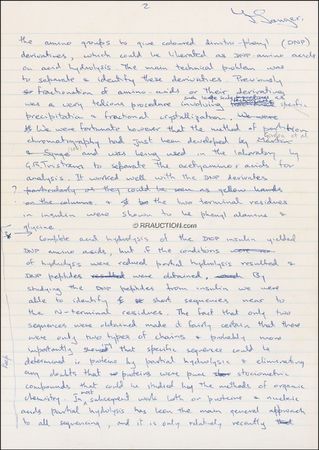 2
F. Sanger.
the amino groups to give coloured dinitro-phenyl (DNP)
derivatives, which could be liberated as DNP-amino acids
on acid hydrolysis. The main technical problem was
to separate & identify these derivatives. Previously
fractionation of amino-acids or their derivatives
was a very tedious procedure involving specific
precipitation & fractional crystallization. We were
We were fortunate however that the method of partition
chromatography had just been developed by Martin
& Synge and was being used in the laboratory by
G.R. Tristram to separate the acetylamino acids for
analysis. It worked well with the DNP derivates
? particularly as they could be seen as yellow bands
on the columns & the two terminal residues
in insulin were shown to be phenyl alanine &
glycine.
© RRAUCTION.COM
Complete acid hydrolysis of the DNP insulin yielded
DNP amino acids, but if the conditions
of hydrolysis were reduced partial hydrolysis resulted &
DNP peptides were obtained. By
studying the DNP peptides from insulin we were
able to identify short sequences near to
the N-terminal residues. The fact that only two
sequences were obtained made it fairly certain that there
were only two types of chains & probably more
importantly that specific sequences could be
determined in proteins by partial hydrolysis & eliminating
any doubts that proteins were pure stoichiometric
compounds that could be studied by the methods of organic
chemistry. In most subsequent work both on proteins & nucleic
acids partial hydrolysis has been the main general approach
to all sequencing, and it is only relatively recently